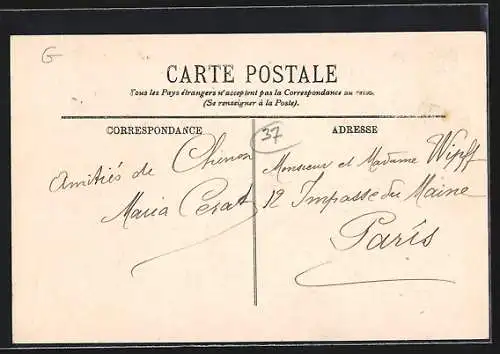 G
CARTE POSTALE
Tous les Pays étrangers n'acceptent pas la Correspondance au recto.
(Se renseigner à la Poste).
CORRESPONDANCE
37
ADRESSE
Amitiés de Chinon
Maria Cerat
Monsieur et Madame Wipff
12 Impasse du Maine
Paris